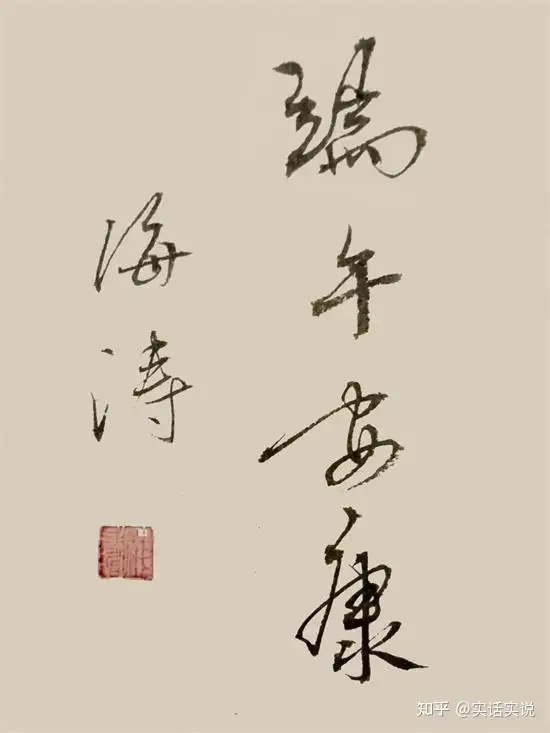 端午安康
海涛
知乎 @实话实说